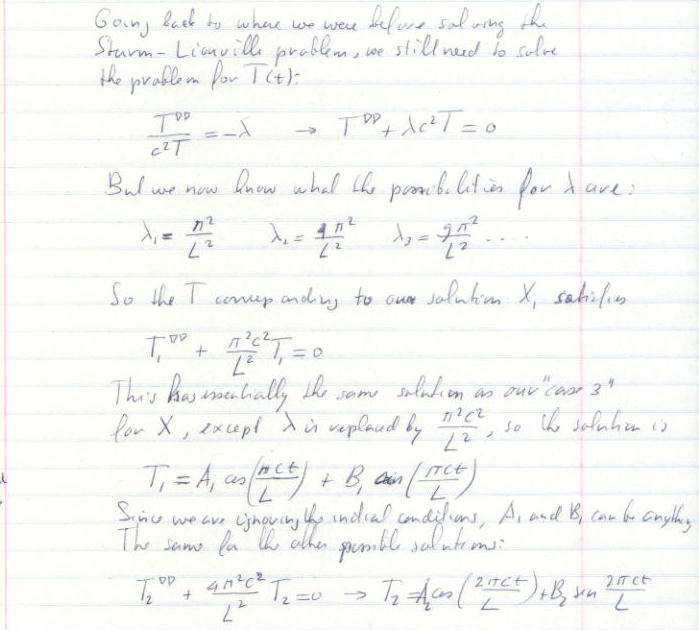 Going back to where we were before solving the
Sturm-Liouville problem, we still need to solve
the problem for T(t):
T'' / c²T = -λ → T'' + λc²T = 0
But we now know what the possibilities for λ are:
λ₁ = π²/L² λ₂ = 4π²/L² λ₃ = 9π²/L² ....
So the T corresponding to our solution X₁ satisfies
T₁'' + π²c²/L² T₁ = 0
This has essentially the same solution as our "case 3"
for X, except λ is replaced by π²c²/L², so the solution is
T₁ = A₁ cos(πct/L) + B₁ sin(πct/L)
Since we are ignoring the initial conditions, A₁ and B₁ can be anything
The same for the other possible solutions:
T₂'' + 4π²c²/L² T₂ = 0 → T₂ = A₂ cos(2πct/L) + B₂ sin 2πct/L